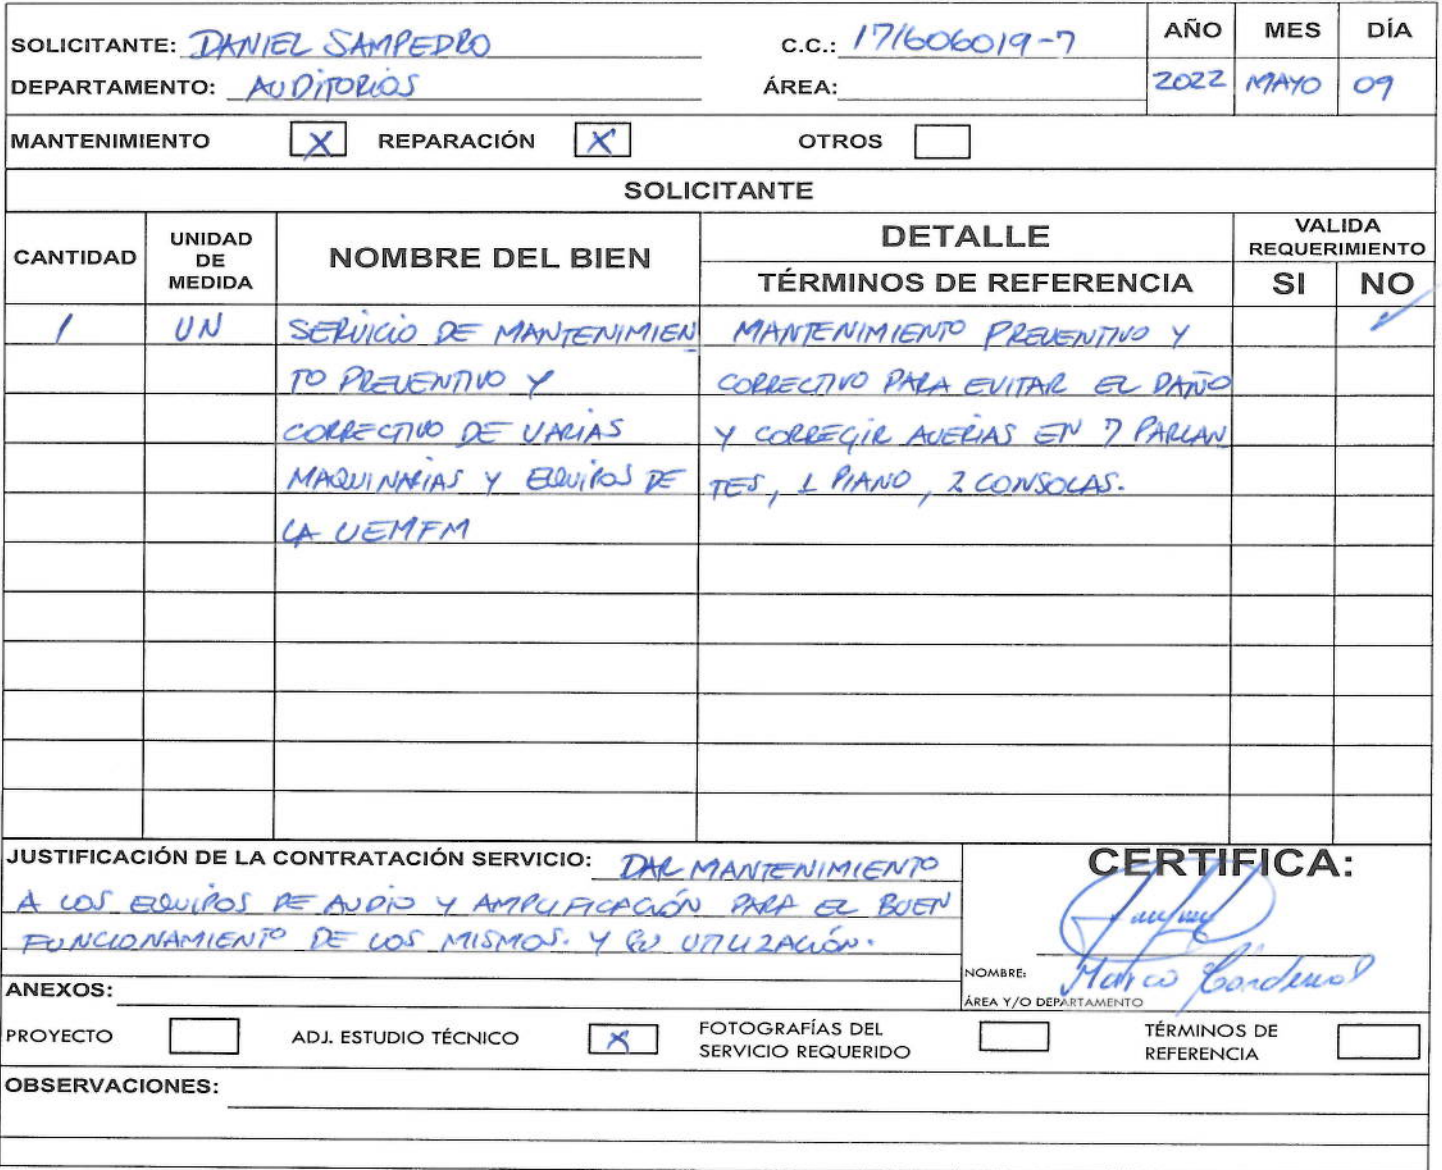 SOLICITANTE: DANIEL SAMPEDRO C.C.: 171606019-7 AÑO MES DÍA
DEPARTAMENTO: AUDITORIOS ÁREA: 2022 MAYO 09
MANTENIMIENTO X REPARACIÓN X OTROS
SOLICITANTE
CANTIDAD UNIDAD DE MEDIDA NOMBRE DEL BIEN DETALLE VALIDA REQUERIMIENTO
TÉRMINOS DE REFERENCIA SI NO
1 UN SERVICIO DE MANTENIMIEN MANTENIMIENTO PREVENTIVO Y ✓
TO PREVENTIVO Y CORRECTIVO PARA EVITAR EL DAÑO
CORRECTIVO DE VARIAS Y CORREGIR AVERIAS EN 7 PARLAN
MAQUINARIAS Y EQUIPOS DE TES, 1 PIANO, 2 CONSOLAS.
LA UEMFM
JUSTIFICACIÓN DE LA CONTRATACIÓN SERVICIO: DAR MANTENIMIENTO
A LOS EQUIPOS DE AUDIO Y AMPLIFICACIÓN PARA EL BUEN
FUNCIONAMIENTO DE LOS MISMOS. Y SU UTILIZACIÓN.
CERTIFICA:
NOMBRE: Marco Cardenal
ÁREA Y/O DEPARTAMENTO
ANEXOS:
PROYECTO ADJ. ESTUDIO TÉCNICO X FOTOGRAFÍAS DEL SERVICIO REQUERIDO TÉRMINOS DE REFERENCIA
OBSERVACIONES: